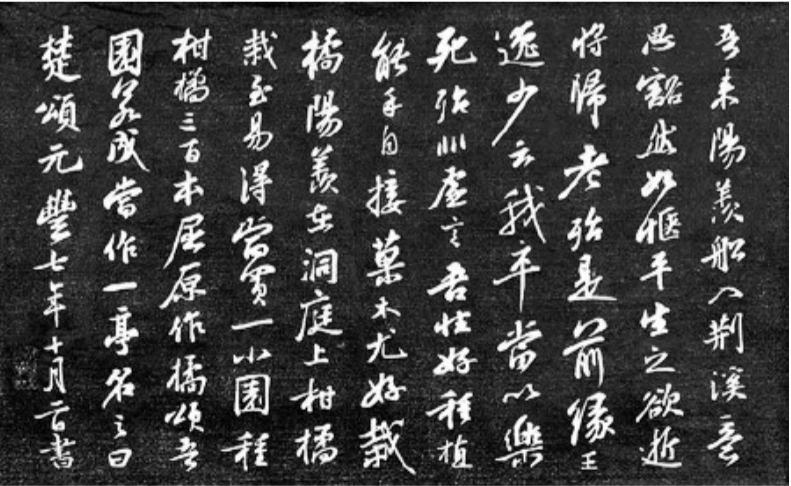 吾来陽羨船入荊溪意
思豁然如愜平生之欲逝
将歸老殆是前缘王
逸少云我卒當以樂
死殆非虚言吾性好種植
能手自接菓木尤好栽
橘陽羨在洞庭上柑橘
栽至易得當買一小園種
柑橘三百本屈原作橘頌吾
園若成當作一亭名之曰
楚頌元豐七年十月二日書